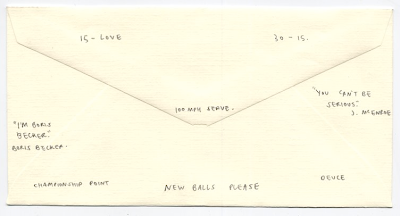 15 - LOVE
30 - 15.
100 MPH SERVE.
"YOU CAN'T BE
SERIOUS."
J. McENROE
"I'M BORIS
BECKER."
BORIS BECKER.
CHAMPIONSHIP POINT
NEW BALLS PLEASE
DEUCE